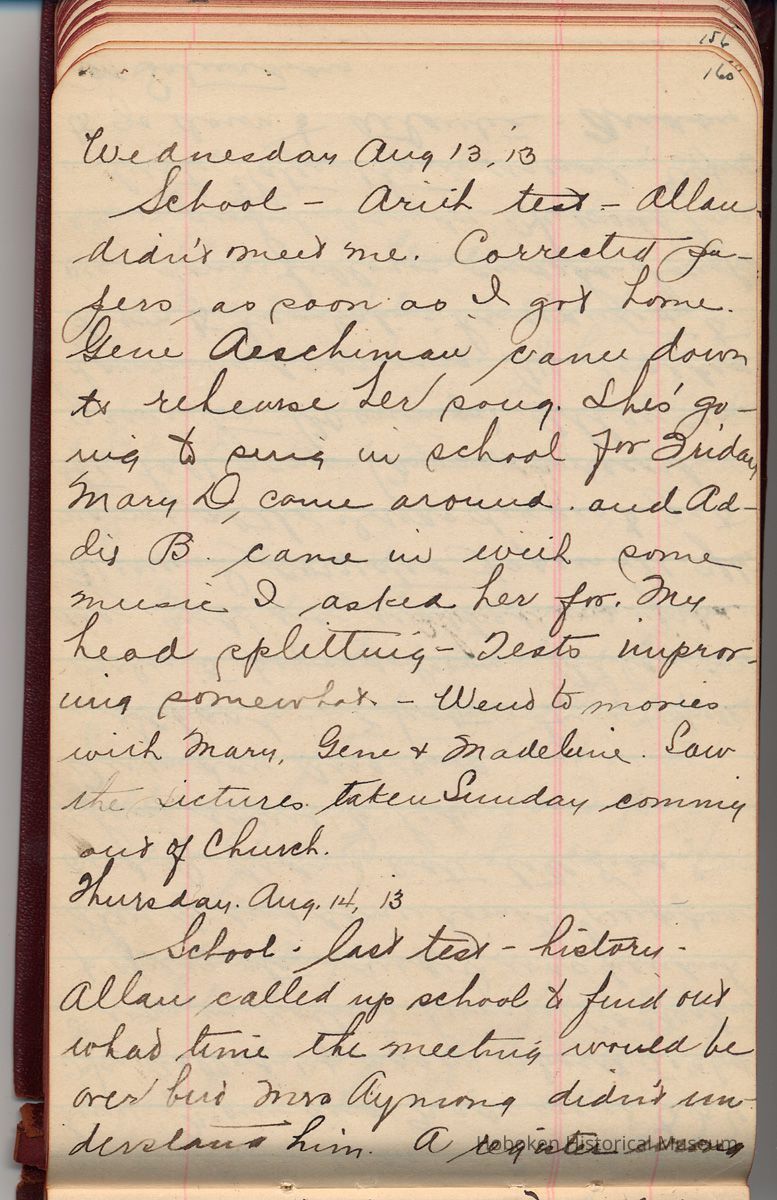 156
160
Wednesday Aug 13, '13
School - Arith test - Allan
didn't meet me. Corrected pa-
pers as soon as I got home.
Gene Aeschiman came down
to rehearse her song. She's go-
ing to sing in school for Friday
Mary D, came around. and Ad-
die B. came in with some
music I asked her for. My
head splitting - Tests improv-
ing somewhat - Went to movies
with Mary, Gene + Madeleine. Saw
the pictures taken Sunday comming
out of Church.
Thursday. Aug. 14, 13
School. last test - history -
Allan called up school to find out
what time the meeting would be
over but Mrs Aymong didn't un-
derstand him. A register
Hoboken Historical Museum